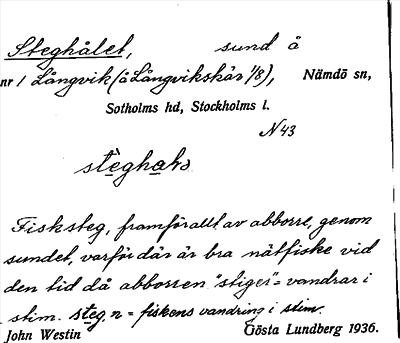 Steghålet, sund å
nr 1 Långvik (å Långvikskär 1/8), Nämdö sn,
Sotholms hd, Stockholms l.
N43
Fisksteg, framförallt av abborre, genom
sundet, varför där är bra nätfiske vid
den tid då abborren "stiger" = vandrar i
stim. steg n = fiskens vandring i stim.
John Westin Gösta Lundberg 1936.